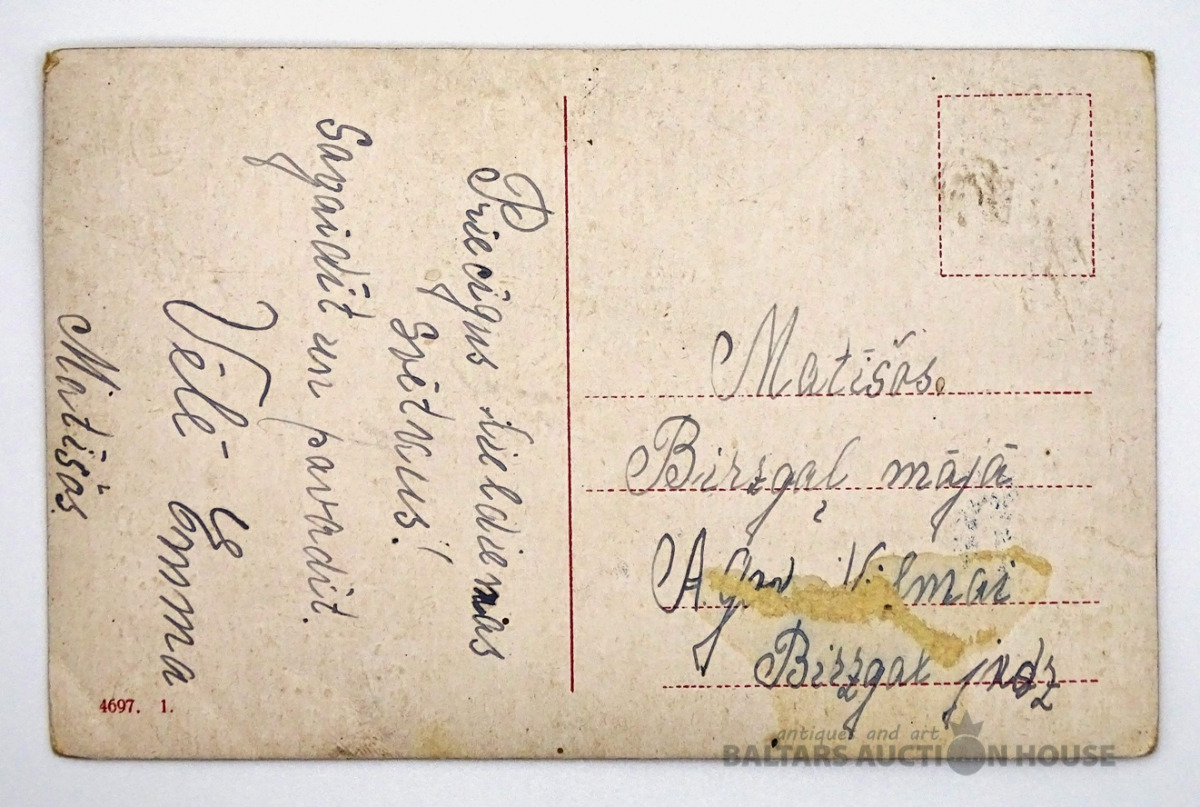 Priecigus lieldienas
svētkus!
Sagaidīt un pavadīt.
Vēlē Emma
Matīšōs
Matīšōs.
Birzgaļ mājā
Vilmai
Birzgal
4697. 1.
antiques and art
BALTARS AUCTION HOUSE